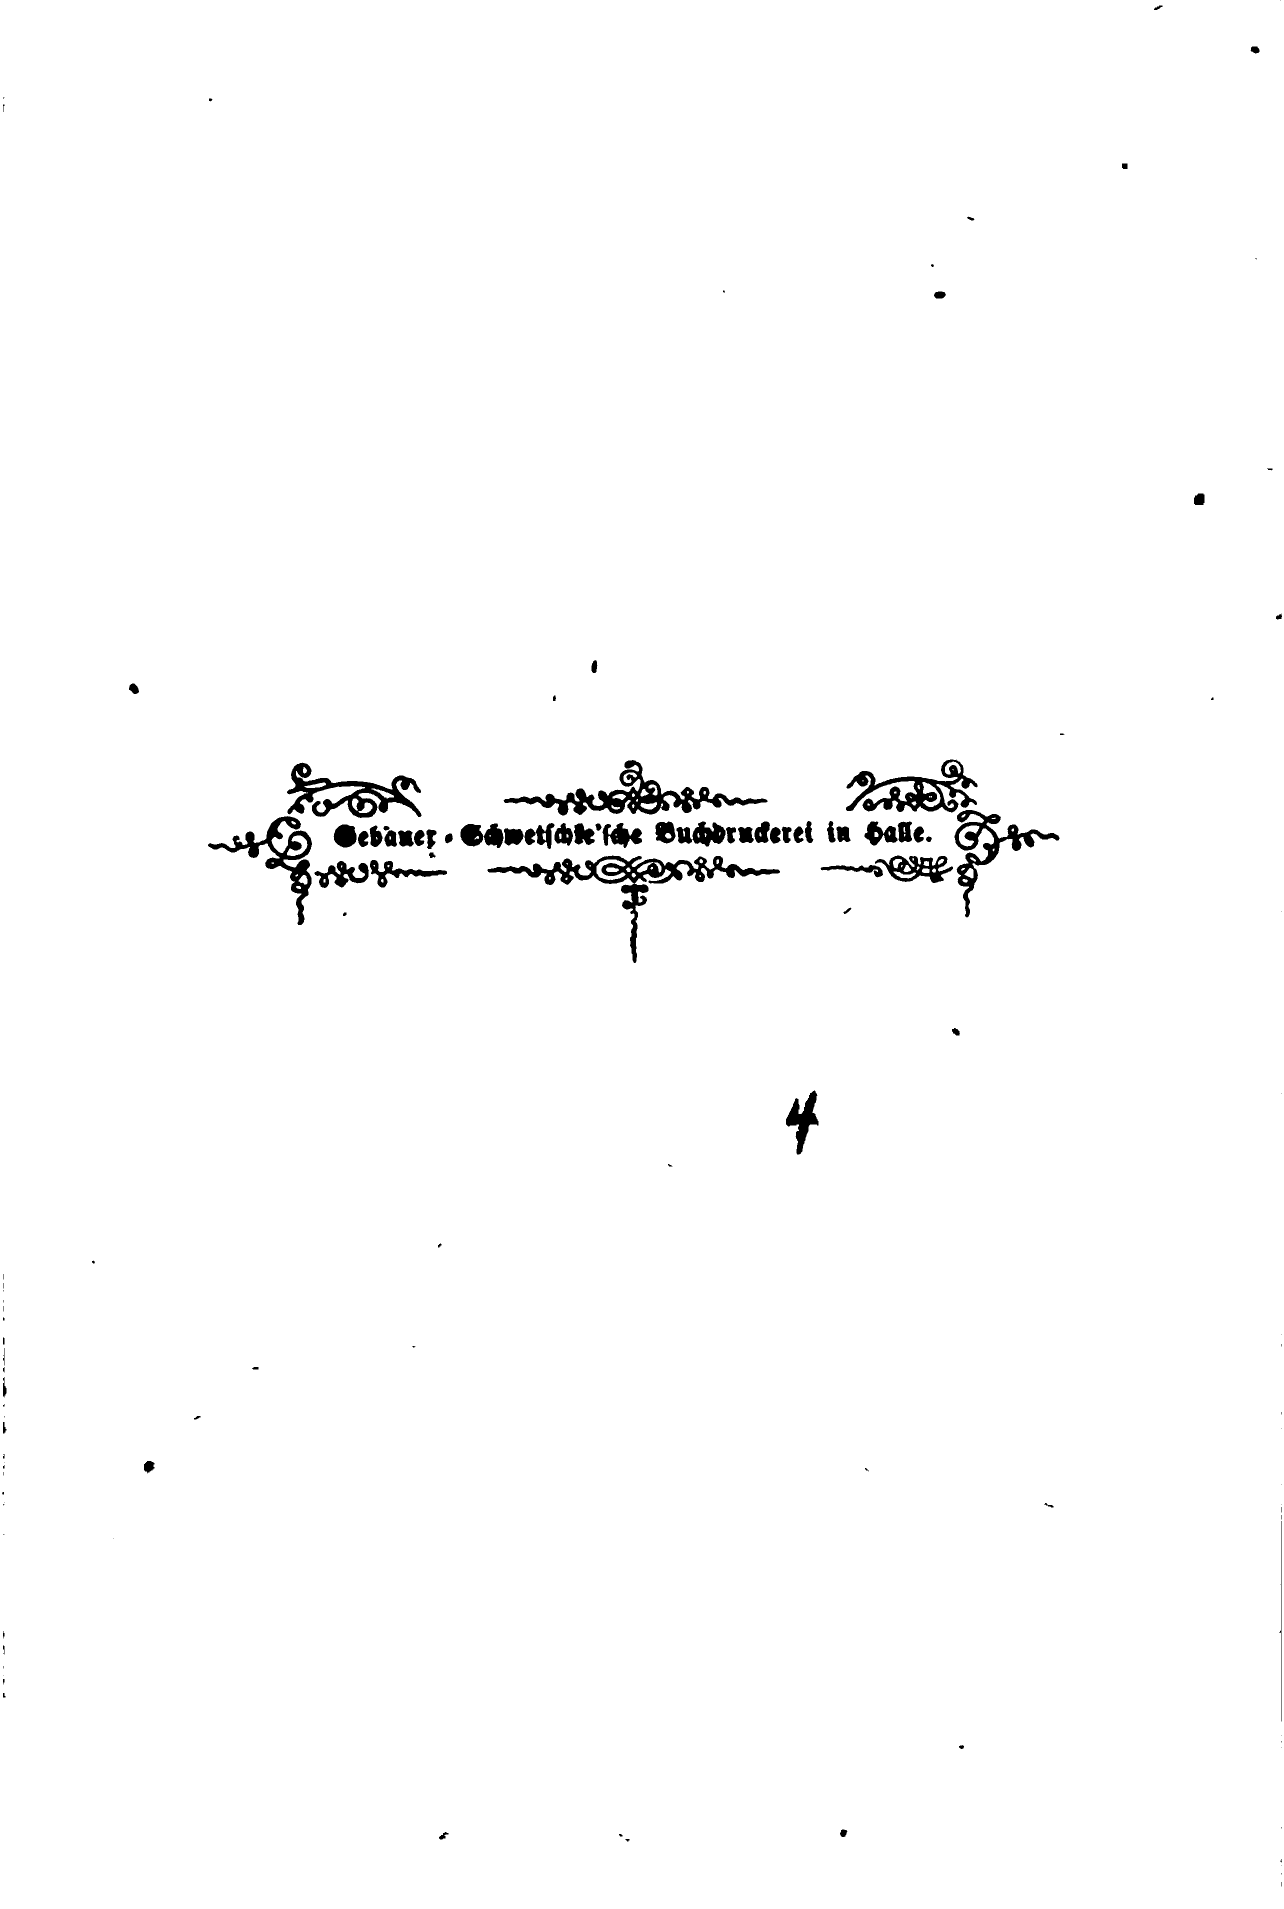 Gebauer-Schwetschke'sche Buchdruckerei in Halle.
4